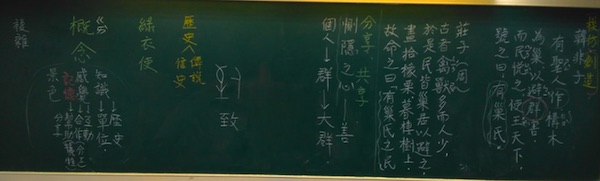 韓非子
有聖人作構木
為巢以避群害
而民悅之使王天下
號之曰有巢氏
莊子
古者禽獸多而人少，
於是民皆巢居以避之，
晝拾橡栗暮棲樹上，
故命之曰有巢氏之民
分享 共享
惻隱之心—善
個人→群→大群
一致
歷史 傳說
信史
綠衣使
概念
知識→單位
歷史
感覺→互動
景色
分子
後雜